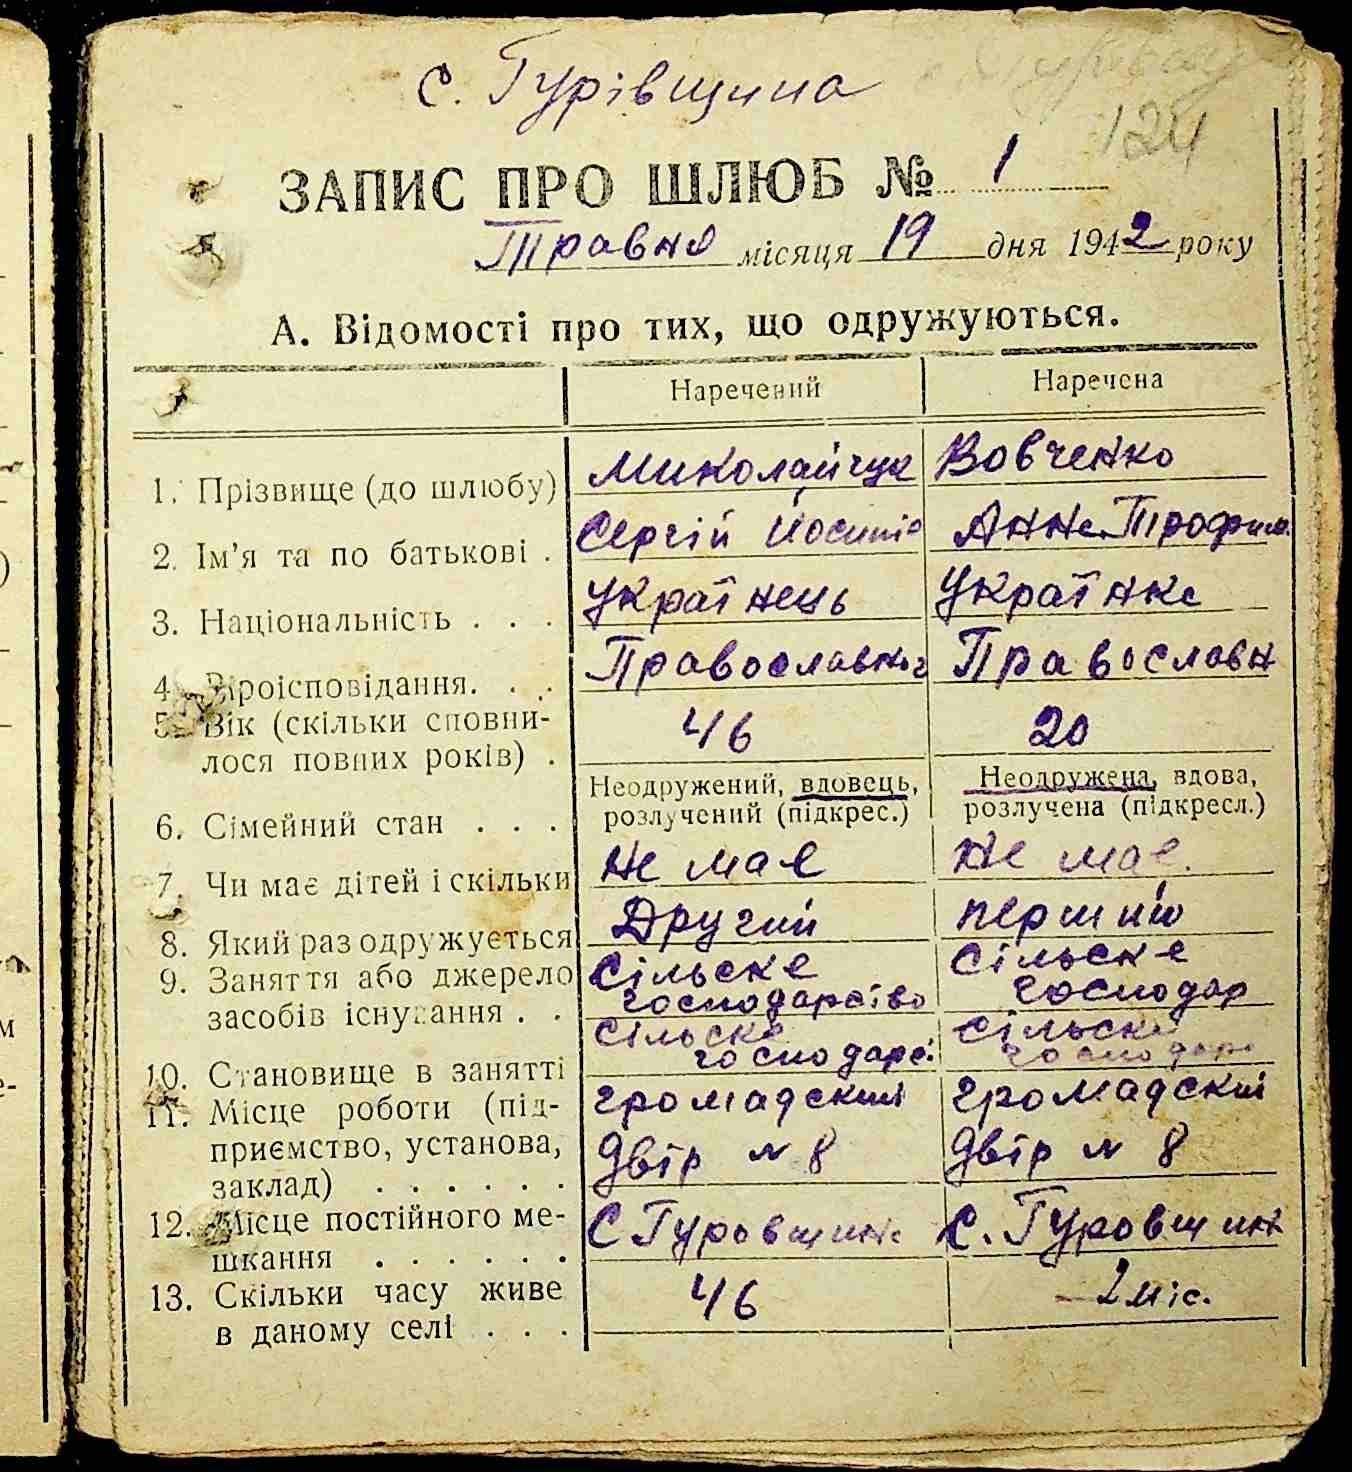 с. Гурівщина
124
ЗАПИС ПРО ШЛЮБ № 1
Травня місяця 19 дня 1942 року
А. Відомості про тих, що одружуються.
Наречений Наречена
1. Прізвище (до шлюбу) Миколайчук Вовченко
2. Ім'я та по батькові . Сергій Йосипів Анна Трофим.
3. Національність . . . Українець Українка
4. Віроісповідання. . . Православног Православн
5. Вік (скільки сповни-
лося повних років) . 46 20
Неодружений, вдовець, Неодружена, вдова,
6. Сімейний стан . . . розлучений (підкрес.) розлучена (підкресл.)
7. Чи має дітей і скільки Не має Не має.
8. Який раз одружується Другий перший
9. Заняття або джерело Сільске Сільске
засобів існування . . господарство господар
Сільске Сільске
10. Становище в занятті господарс. господарс
11. Місце роботи (під- громадский громадский
приємство, установа, двір № 8 двір № 8
заклад) . . . . . .
12. Місце постійного ме- С Гуровщина С. Гуровщин
шкання . . . . . .
13. Скільки часу живе 46 2 міс.
в даному селі . . .